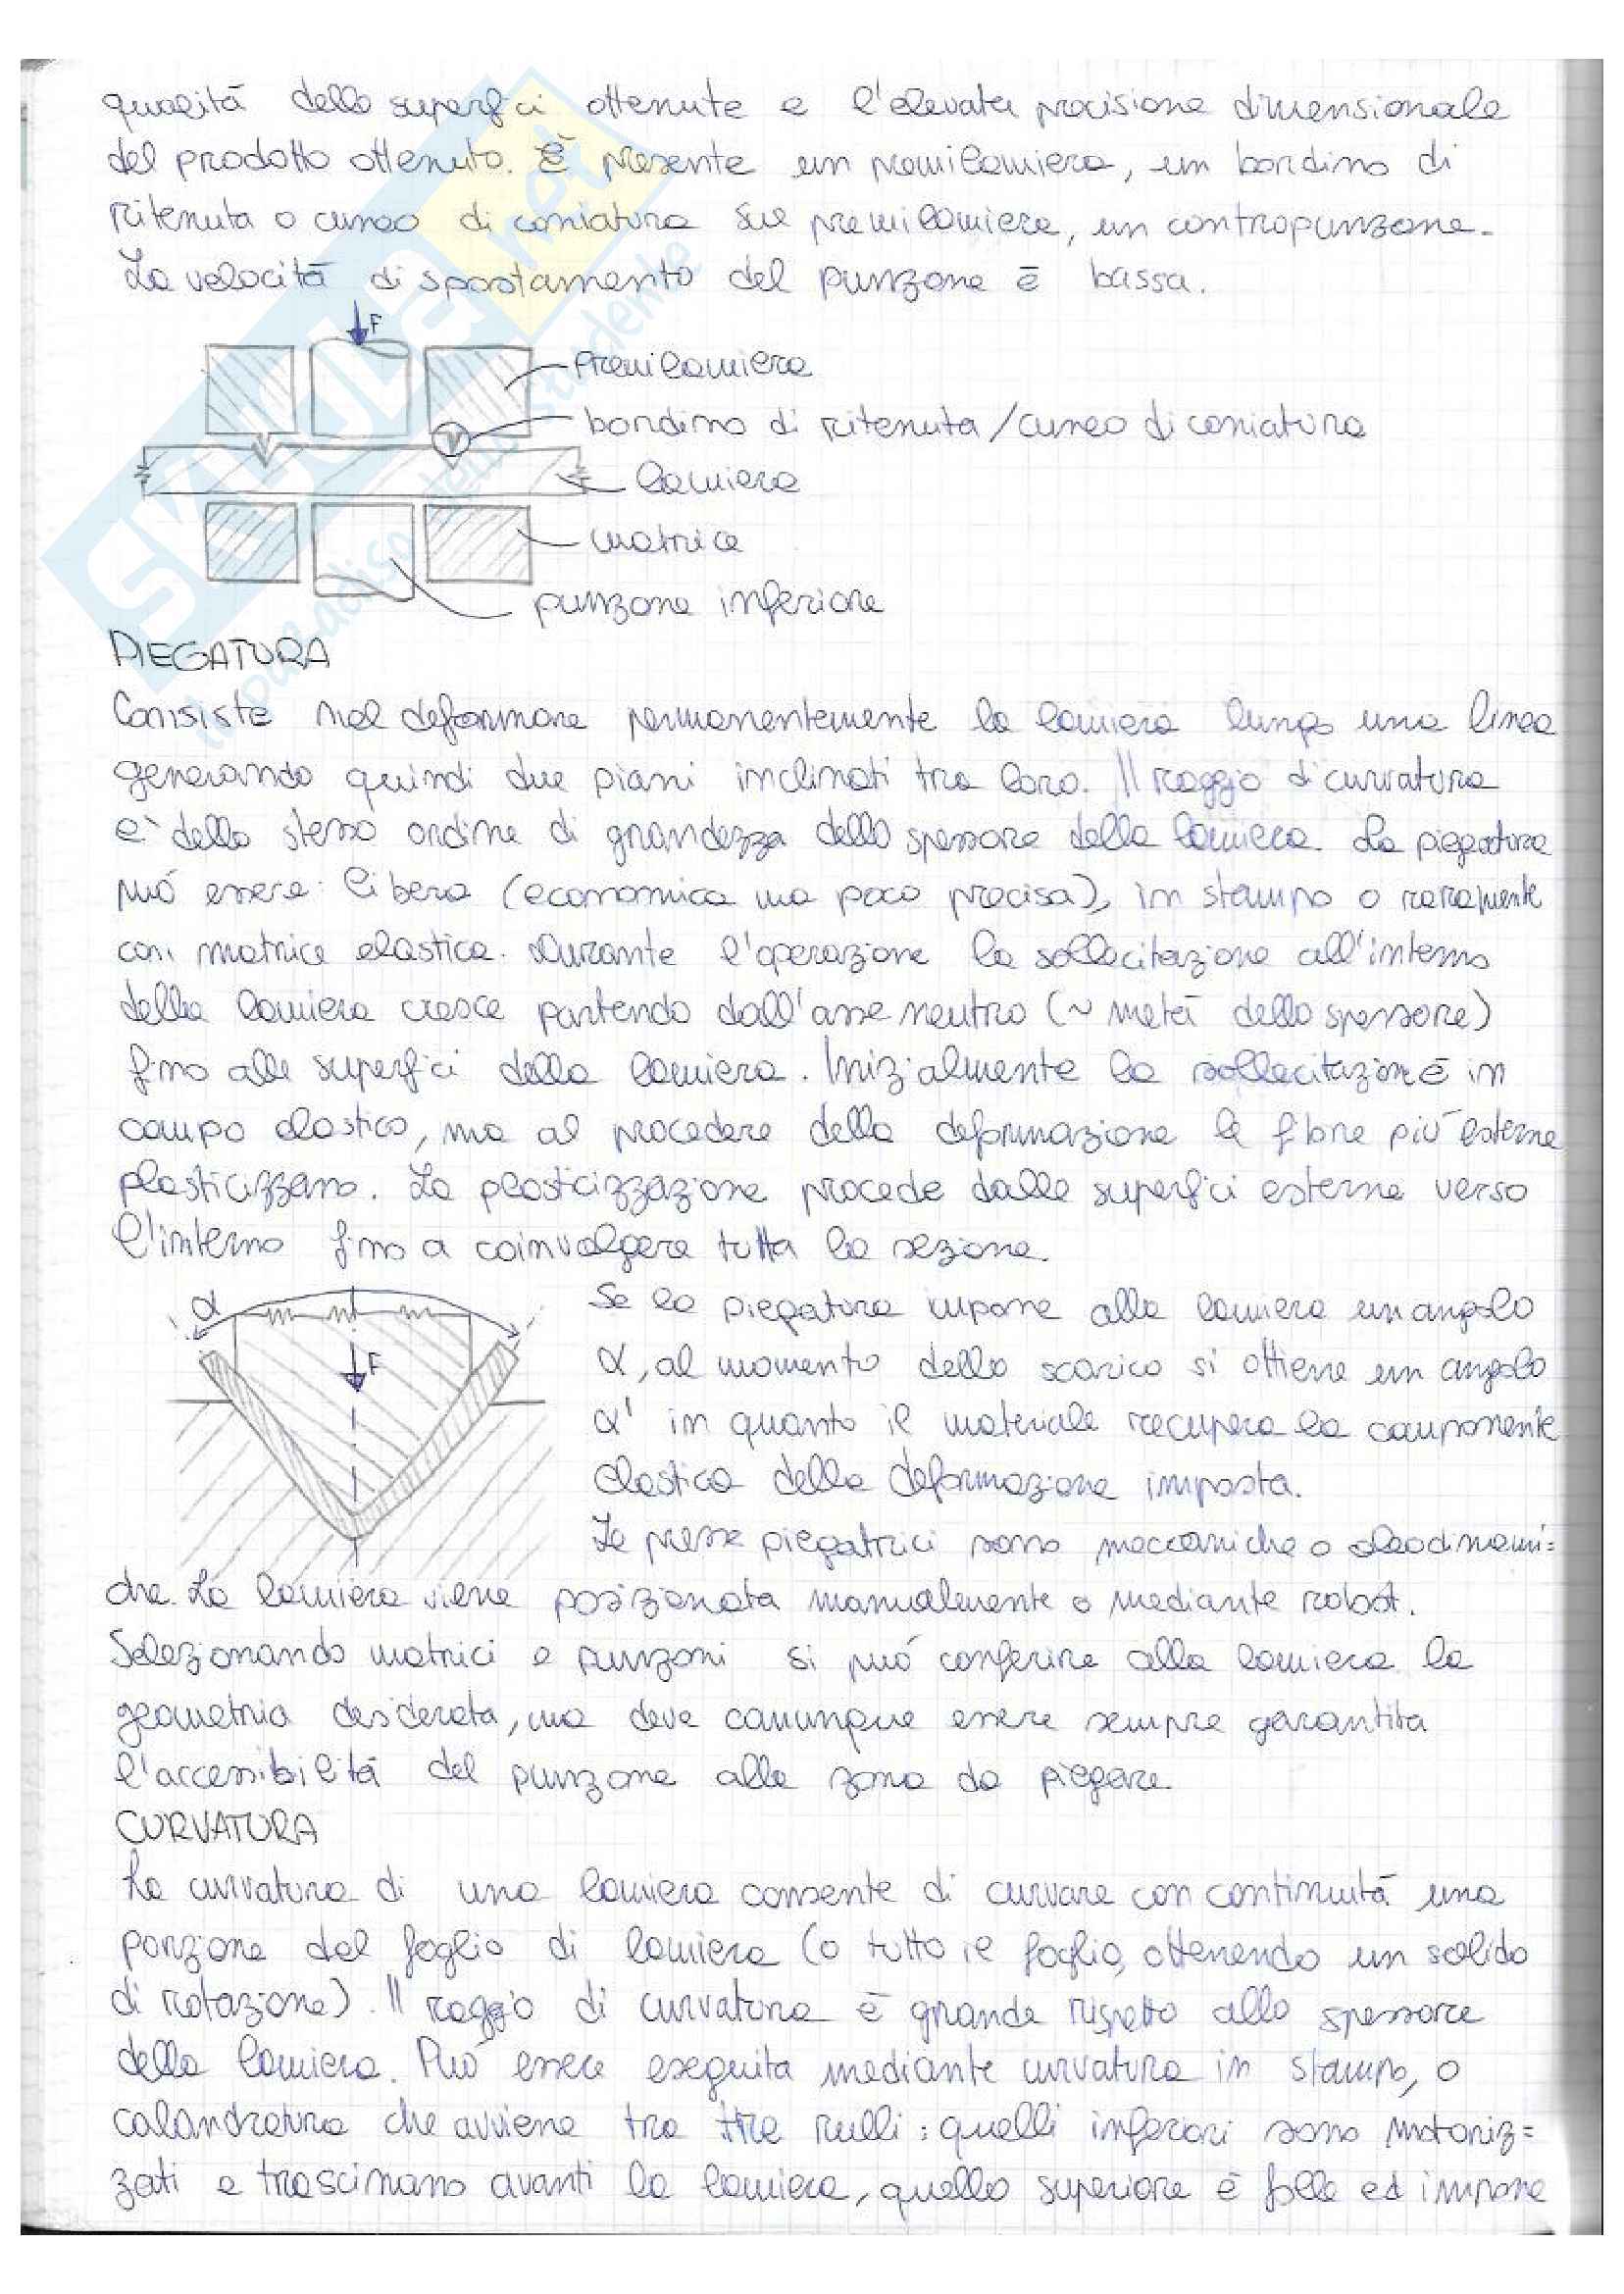 qualità delle superfici ottenute e l'elevata precisione dimensionale
del prodotto ottenuto. È presente un premilamiera, un bordino di
ritenuta o cuneo di coniatura sul premilamiera, un contropunzone.
La velocità di spostamento del punzone è bassa.
F
Premilamiera
bordino di ritenuta/cuneo di coniatura
lamiera
matrice
punzone inferiore
SKUOLA.net
il paradiso dello studente
PIEGATURA
Consiste nel deformare permanentemente la lamiera lungo una linea
generando quindi due piani inclinati tra loro. Il raggio di curvatura
e' dello stesso ordine di grandezza dello spessore della lamiera. La piegatura
può essere: libera (economica ma poco precisa), in stampo o raramente
con matrice elastica. Durante l'operazione la sollecitazione all'interno
della lamiera cresce partendo dall'asse neutro (~ metà dello spessore)
fino alle superfici della lamiera. Inizialmente la sollecitazione è in
campo elastico, ma al procedere della deformazione le fibre più esterne
plasticizzano. La plasticizzazione procede dalle superfici esterne verso
l'interno fino a coinvolgere tutta la sezione.
α
F
Se la piegatura impone alla lamiera un angolo
α, al momento dello scarico si ottiene un angolo
α' in quanto il materiale recupera la componente
elastica della deformazione imposta.
Le presse piegatrici sono meccaniche o oleodinami=
che. La lamiera viene posizionata manualmente o mediante robot.
Selezionando matrici e punzoni si può conferire alla lamiera la
geometria desiderata, ma deve comunque essere sempre garantita
l'accessibilità del punzone alla zona da piegare
CURVATURA
La curvatura di una lamiera consente di curvare con continuità una
porzione del foglio di lamiera (o tutto il foglio, ottenendo un solido
di rotazione). Il raggio di curvatura è grande rispetto allo spessore
della lamiera. Può essere eseguita mediante curvatura in stampo, o
calandratura che avviene tra tre rulli: quelli inferiori sono motoriz=
zati e trascinano avanti la lamiera, quello superiore è folle ed impone